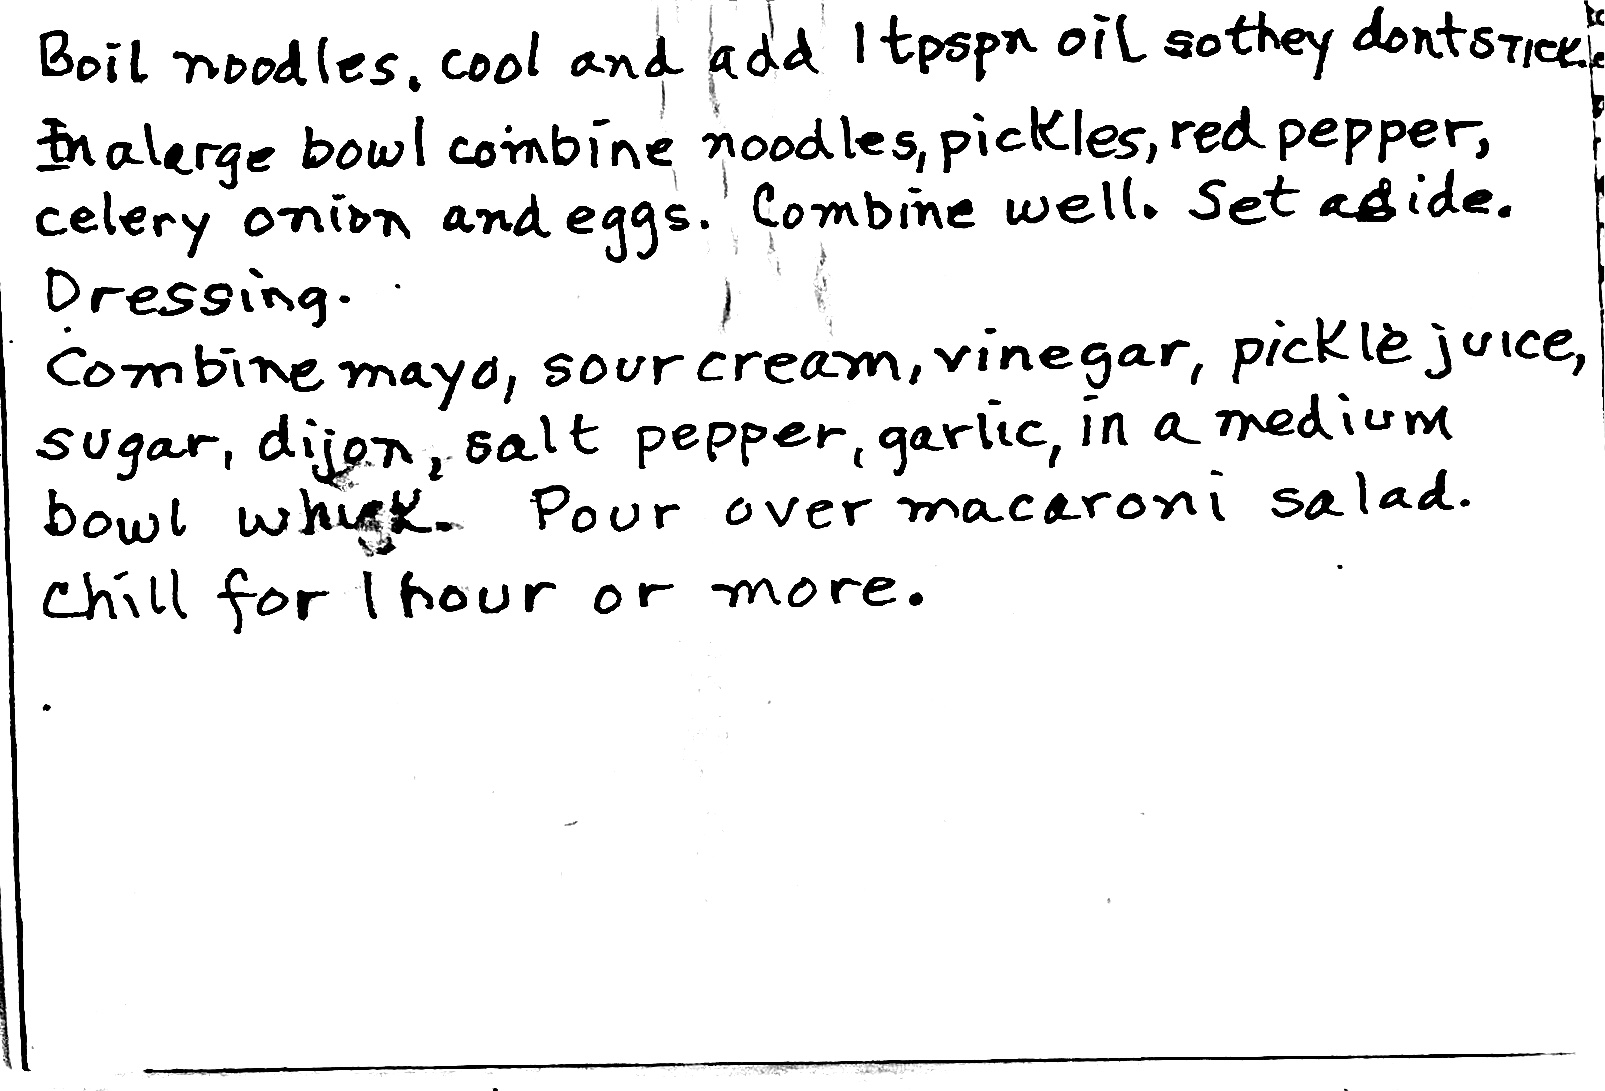 Boil noodles, cool and add 1 tpspn oil so they dont stick.
In a large bowl combine noodles, pickles, red pepper,
celery onion and eggs. Combine well. Set aside.
Dressing.
Combine mayo, sour cream, vinegar, pickle juice,
sugar, dijon, salt pepper, garlic, in a medium
bowl whisk. Pour over macaroni salad.
Chill for 1 hour or more.